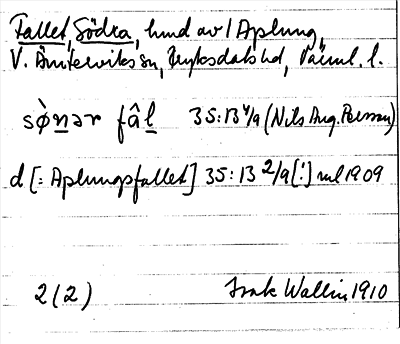 Fallet, Södra, hmd av 1 Aplung,
V. Ämterviks sn, Fryksdals hd, Värml. l.
sø̀nər fâl 35:13 4/9 (Nils Aug. Persson)
d [: Aplungsfallet] 35:13 2/9 [:] ml 1909
2 (2) Isak Wallin 1910